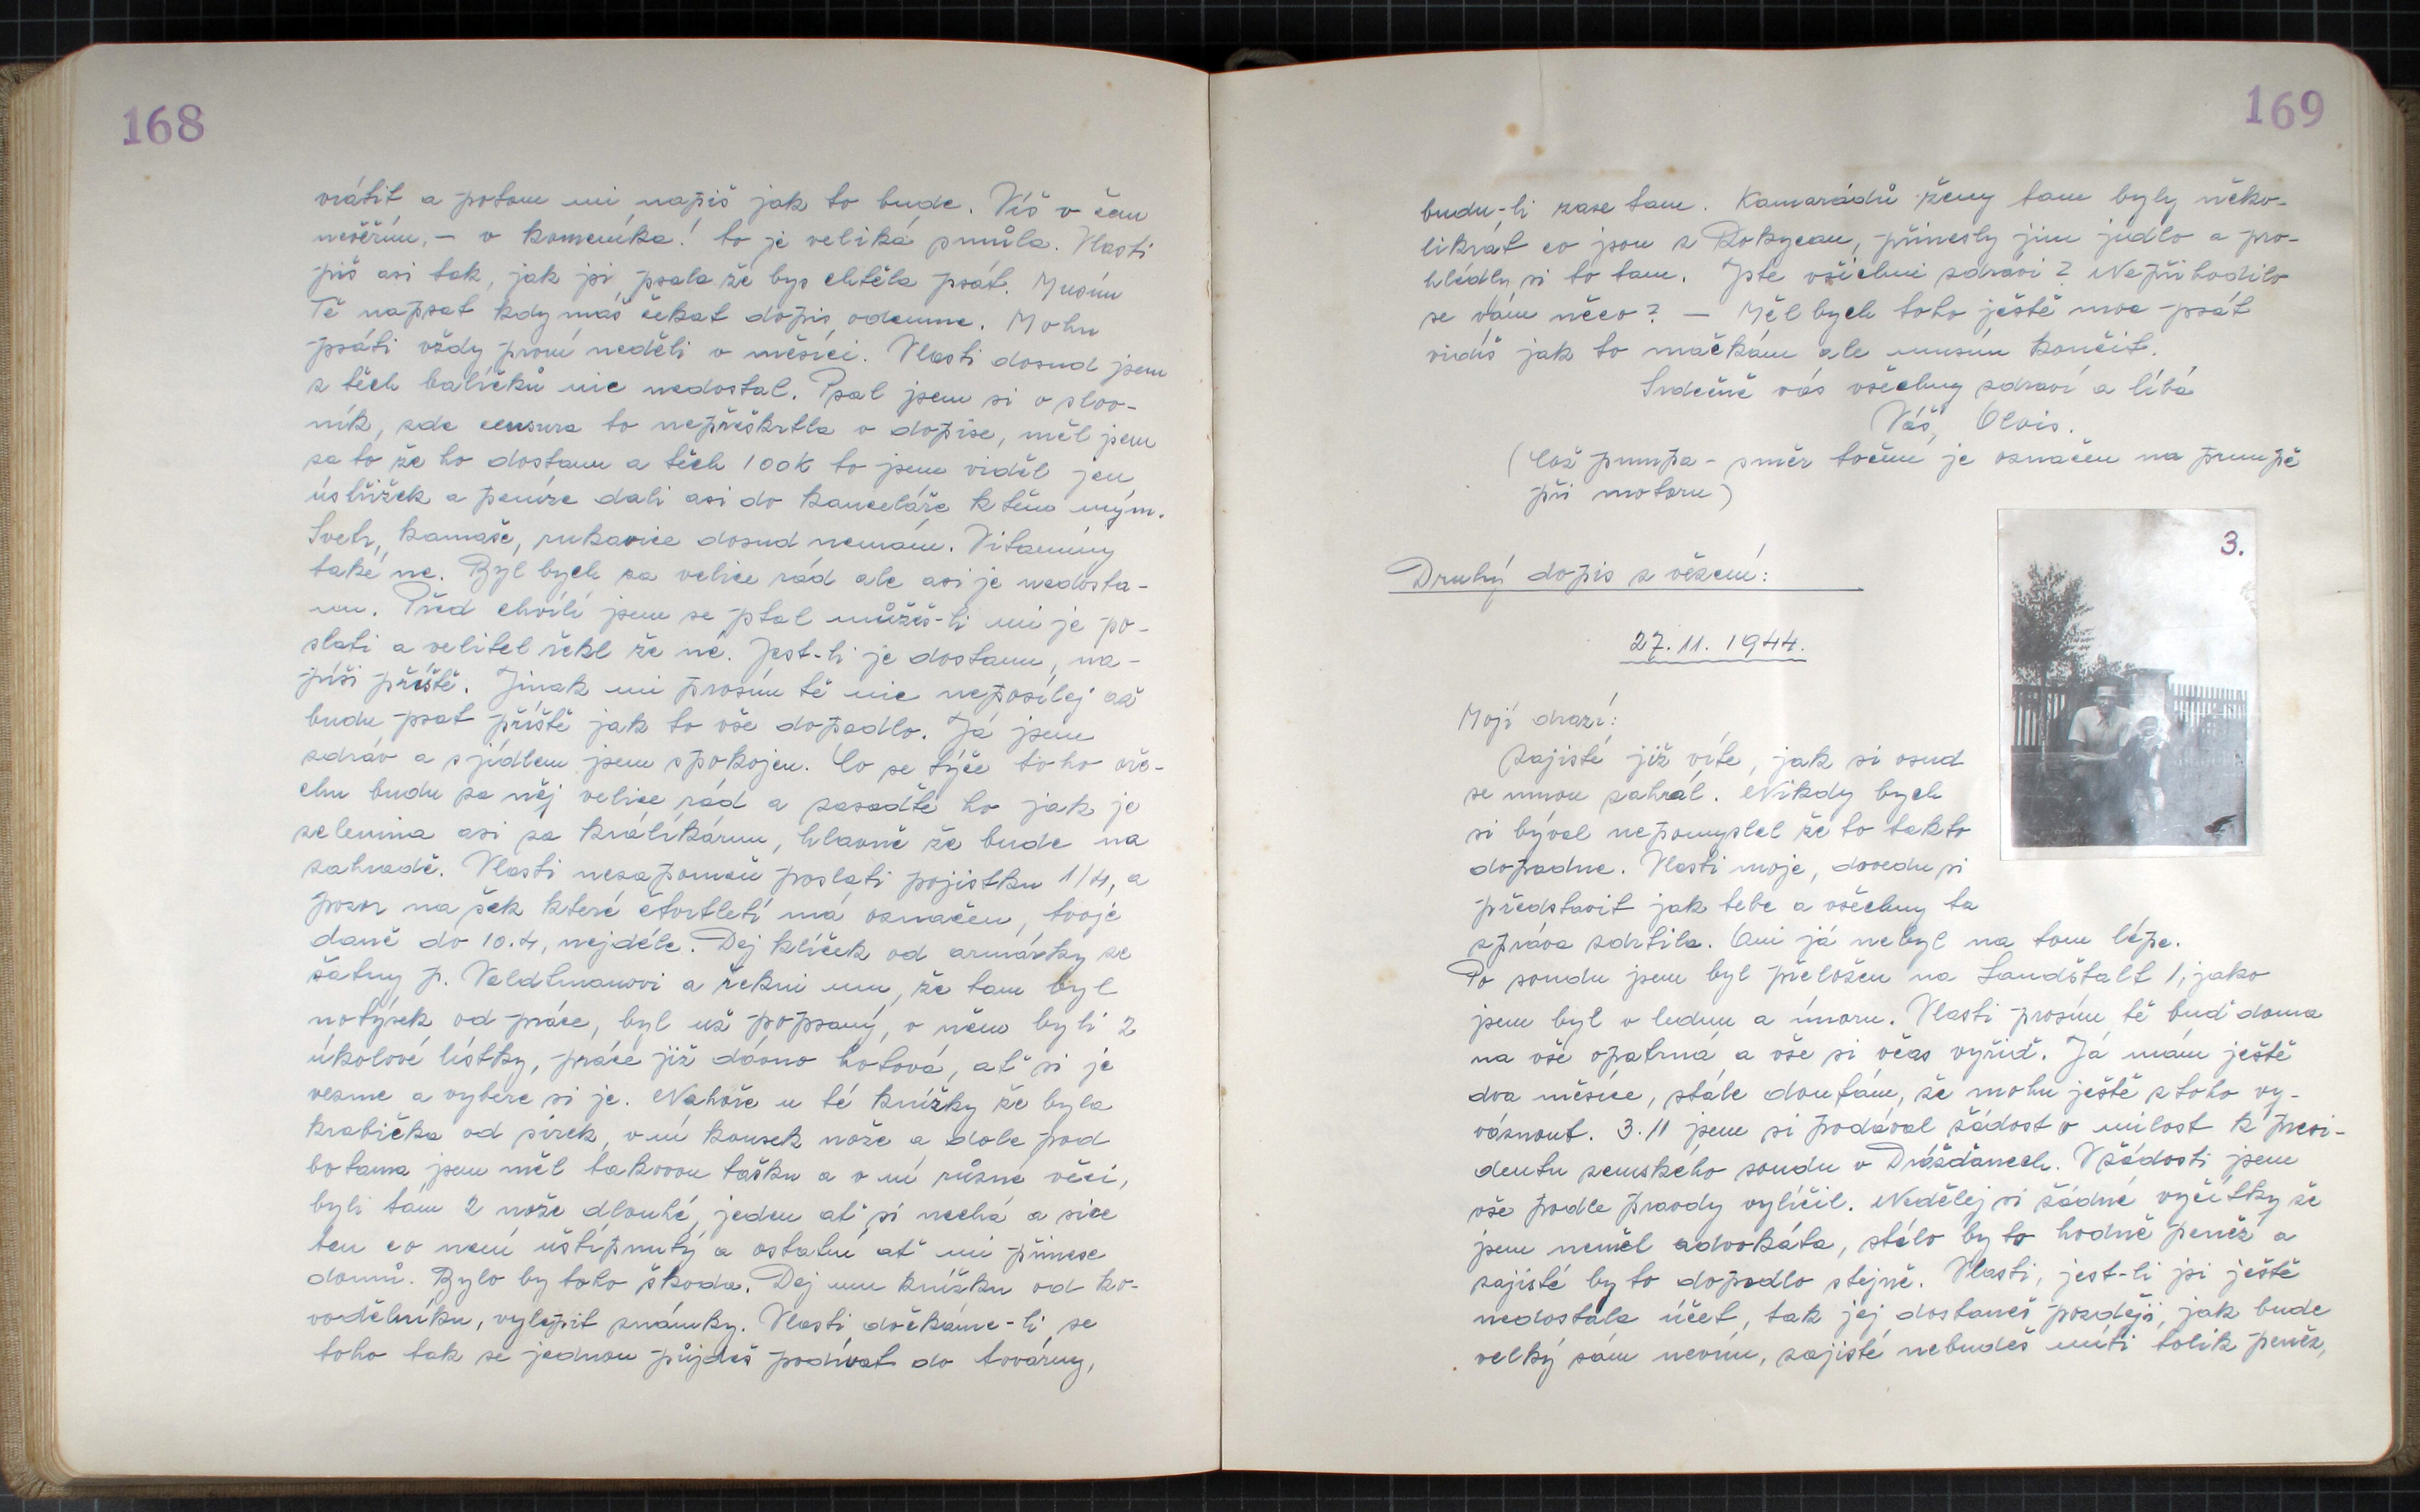 168
vrátit a potom mi napiš jak to bude. Víš v čem
nevěřím, – v komeníka! to je veliká smůla. Vlasti
piš asi tak, jak jsi psala že bys chtěla psát. Musím
Tě napsat kdy máš čekat dopis odemne. Mohu
psáti vždy první neděli v měsíci. Vlasti dosud jsem
z těch balíčků nic nedostal. Psal jsem si o slov-
ník, zda censura to nepřeškrtla v dopise, měl jsem
za to že ho dostanu a těch 100K to jsem viděl jen
ústřižek a peníze dali asi do kanceláře k těm mým.
Svetr, kamaše, rukavice dosud nemám. Vitamíny
také ne. Byl bych za velice rád ale asi je nedosta-
nu. Před chvílí jsem se ptal můžeš-li mi je po-
slati a velitel řekl že né. Jest-li je dostanu, na-
píši příště. Jinak mi prosím tě nic neposílej až
budu psat příště jak to vše dopadlo. Já jsem
zdráv a s jídlem jsem spokojen. Co se týče toho oře-
chu budu za něj velice rád a zasaďte ho jak je
zelenina asi za králíkárnu, hlavně že bude na
zahradě. Vlasti nezapomeň poslati pojistku 1/4, a
pozor na šek které čtvrtletí má označen, tvoje
daně do 10.4, nejdéle. Dej klíček od armárky ze
šatny p. Veldtmanovi a řekni mu, že tam byl
notýsek od práce, byl už popsaný, v něm byli 2
úkolové lístky, práce již dávno hotová, ať si je
vezme a vybere si je. Nahoře u té knížky že byla
krabička od sirek, v ní kousek nože a dole pod
botama jsem měl takovou tašku a v ní různé věci,
byli tam 2 nože dlouhé, jeden ať si nechá a sice
ten co není uštípnutý a ostatní ať mi přinese
domů. Bylo by toho škoda. Dej mu knížku od ko-
vodělníku, vylepit známky. Vlasti dočkáme-li se
toho tak se jednou půjdeš podívat do továrny,
169
budu-li zase tam. Kamarádů ženy tam byly něko-
likrát co jsou z Rokycan, přinesly jim jídlo a pro-
hlédly si to tam. Jste všichni zdrávi? Nepřihodilo
se vám něco? – Měl bych toho ještě moc psát
vidíš jak to mačkám ale musím končit.
Srdečně vás všechny zdraví a líbá
Váš, Olois.
(Což pumpa – směr točení je označen na pumpě
při motoru)
3.
Druhý dopis z vězení:
27. 11. 1944.
Moji drazí:
Zajisté již víte, jak si osud
se mnou zahrál. Nikdy bych
si býval nepomyslel že to takto
dopadne. Vlasti moje, dovedu si
představit jak tebe a všechny ta
zpráva zdrtila. Ani já nebyl na tom lépe.
Po soudu jsem byl přeložen na Landštalt 1, jako
jsem byl v lednu a únoru. Vlasti prosím tě buď doma
na vše opatrná a vše si včas vyřiď. Já mám ještě
dva měsíce, stále doufám, že mohu ještě z toho vy-
váznout. 3.11 jsem si podával žádost o milost k presi-
dentu zemského soudu v Drážďanech. V žádosti jsem
vše podle pravdy vylíčil. Nedělej si žádné výčitky že
jsem neměl advokáta, stálo by to hodně peněz a
zajisté by to dopadlo stejně. Vlasti, jest-li jsi ještě
nedostala účet, tak jej dostaneš později, jak bude
velký sám nevím, zajisté nebudeš míti tolik peněz,